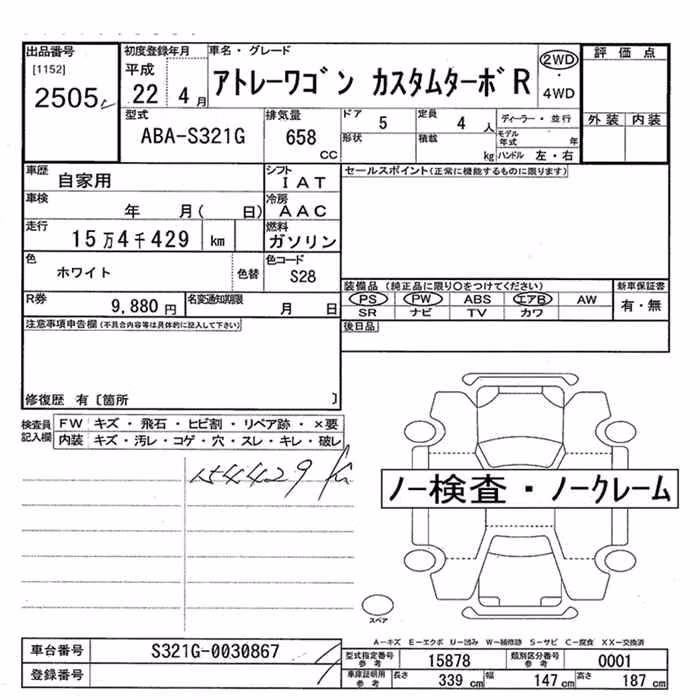 出品番号
[1152]
2505
初度登録年月
平成
22 4月
車名・グレード
アトレーワゴン カスタムターボR
2WD
・
4WD
評価点
外装 内装
型式
ABA-S321G
排気量
658 cc
ドア 5
形状
定員 4 人
積載 kg
ディーラー・並行
モデル年式 年
ハンドル 左・右
車歴
自家用
シフト
IAT
セールスポイント(正常に機能するものに限ります)
車検
年 月( 日)
冷房
AAC
走行
15万4千429 km
燃料
ガソリン
色
ホワイト
色替
色コード
S28
装備品 (純正品に限り○をつけてください)
PS PW ABS エアB AW
SR ナビ TV カワ
新車保証書
有・無
R券
9,880 円
名変通知期限
月 日
後日品
注意事項申告欄(不具合内容等は具体的に記入して下さい)
修復歴 有〔箇所 〕
検査員記入欄
FW キズ・飛石・ヒビ割・リペア跡・×要
内装 キズ・汚レ・コゲ・穴・スレ・キレ・破レ
154429
ノー検査・ノークレーム
スペア
A-キズ E-エクボ U-凹み W-補修跡 S-サビ C-腐食 XX-交換済
車台番号 S321G-0030867
登録番号
型式指定番号参考 15878 類別区分番号参考 0001
車庫証明用参考 長さ 339 cm 幅 147 cm 高さ 187 cm